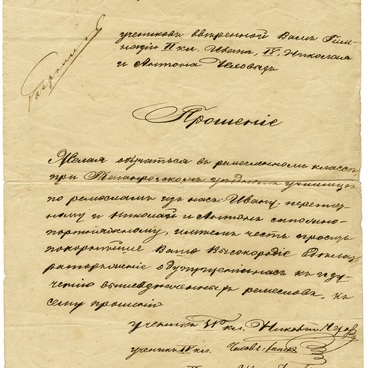 учениковъ вверенной Вамъ Гим-
назіи II кл. Ивана, IV, Николая
и Антона Чеховыхъ
Прошеніе
Желая обучаться въ ремесленномъ классѣ
при Таганрогскомъ уѣздномъ училищѣ
по ремесламъ изъ насъ Ивану переплет-
ному и Николай и Антонъ сапожно-
портняжному, имѣемъ честь просить
покорнѣйше Ваше Высокородіе сдѣлать
распоряженіе о допущеніи насъ къ изу-
ченію вышеозначенныхъ ремеслъ, къ
сему прошенію
ученикъ кл. Николай Чехов
ученикъ IV кл. Чеховъ Антон